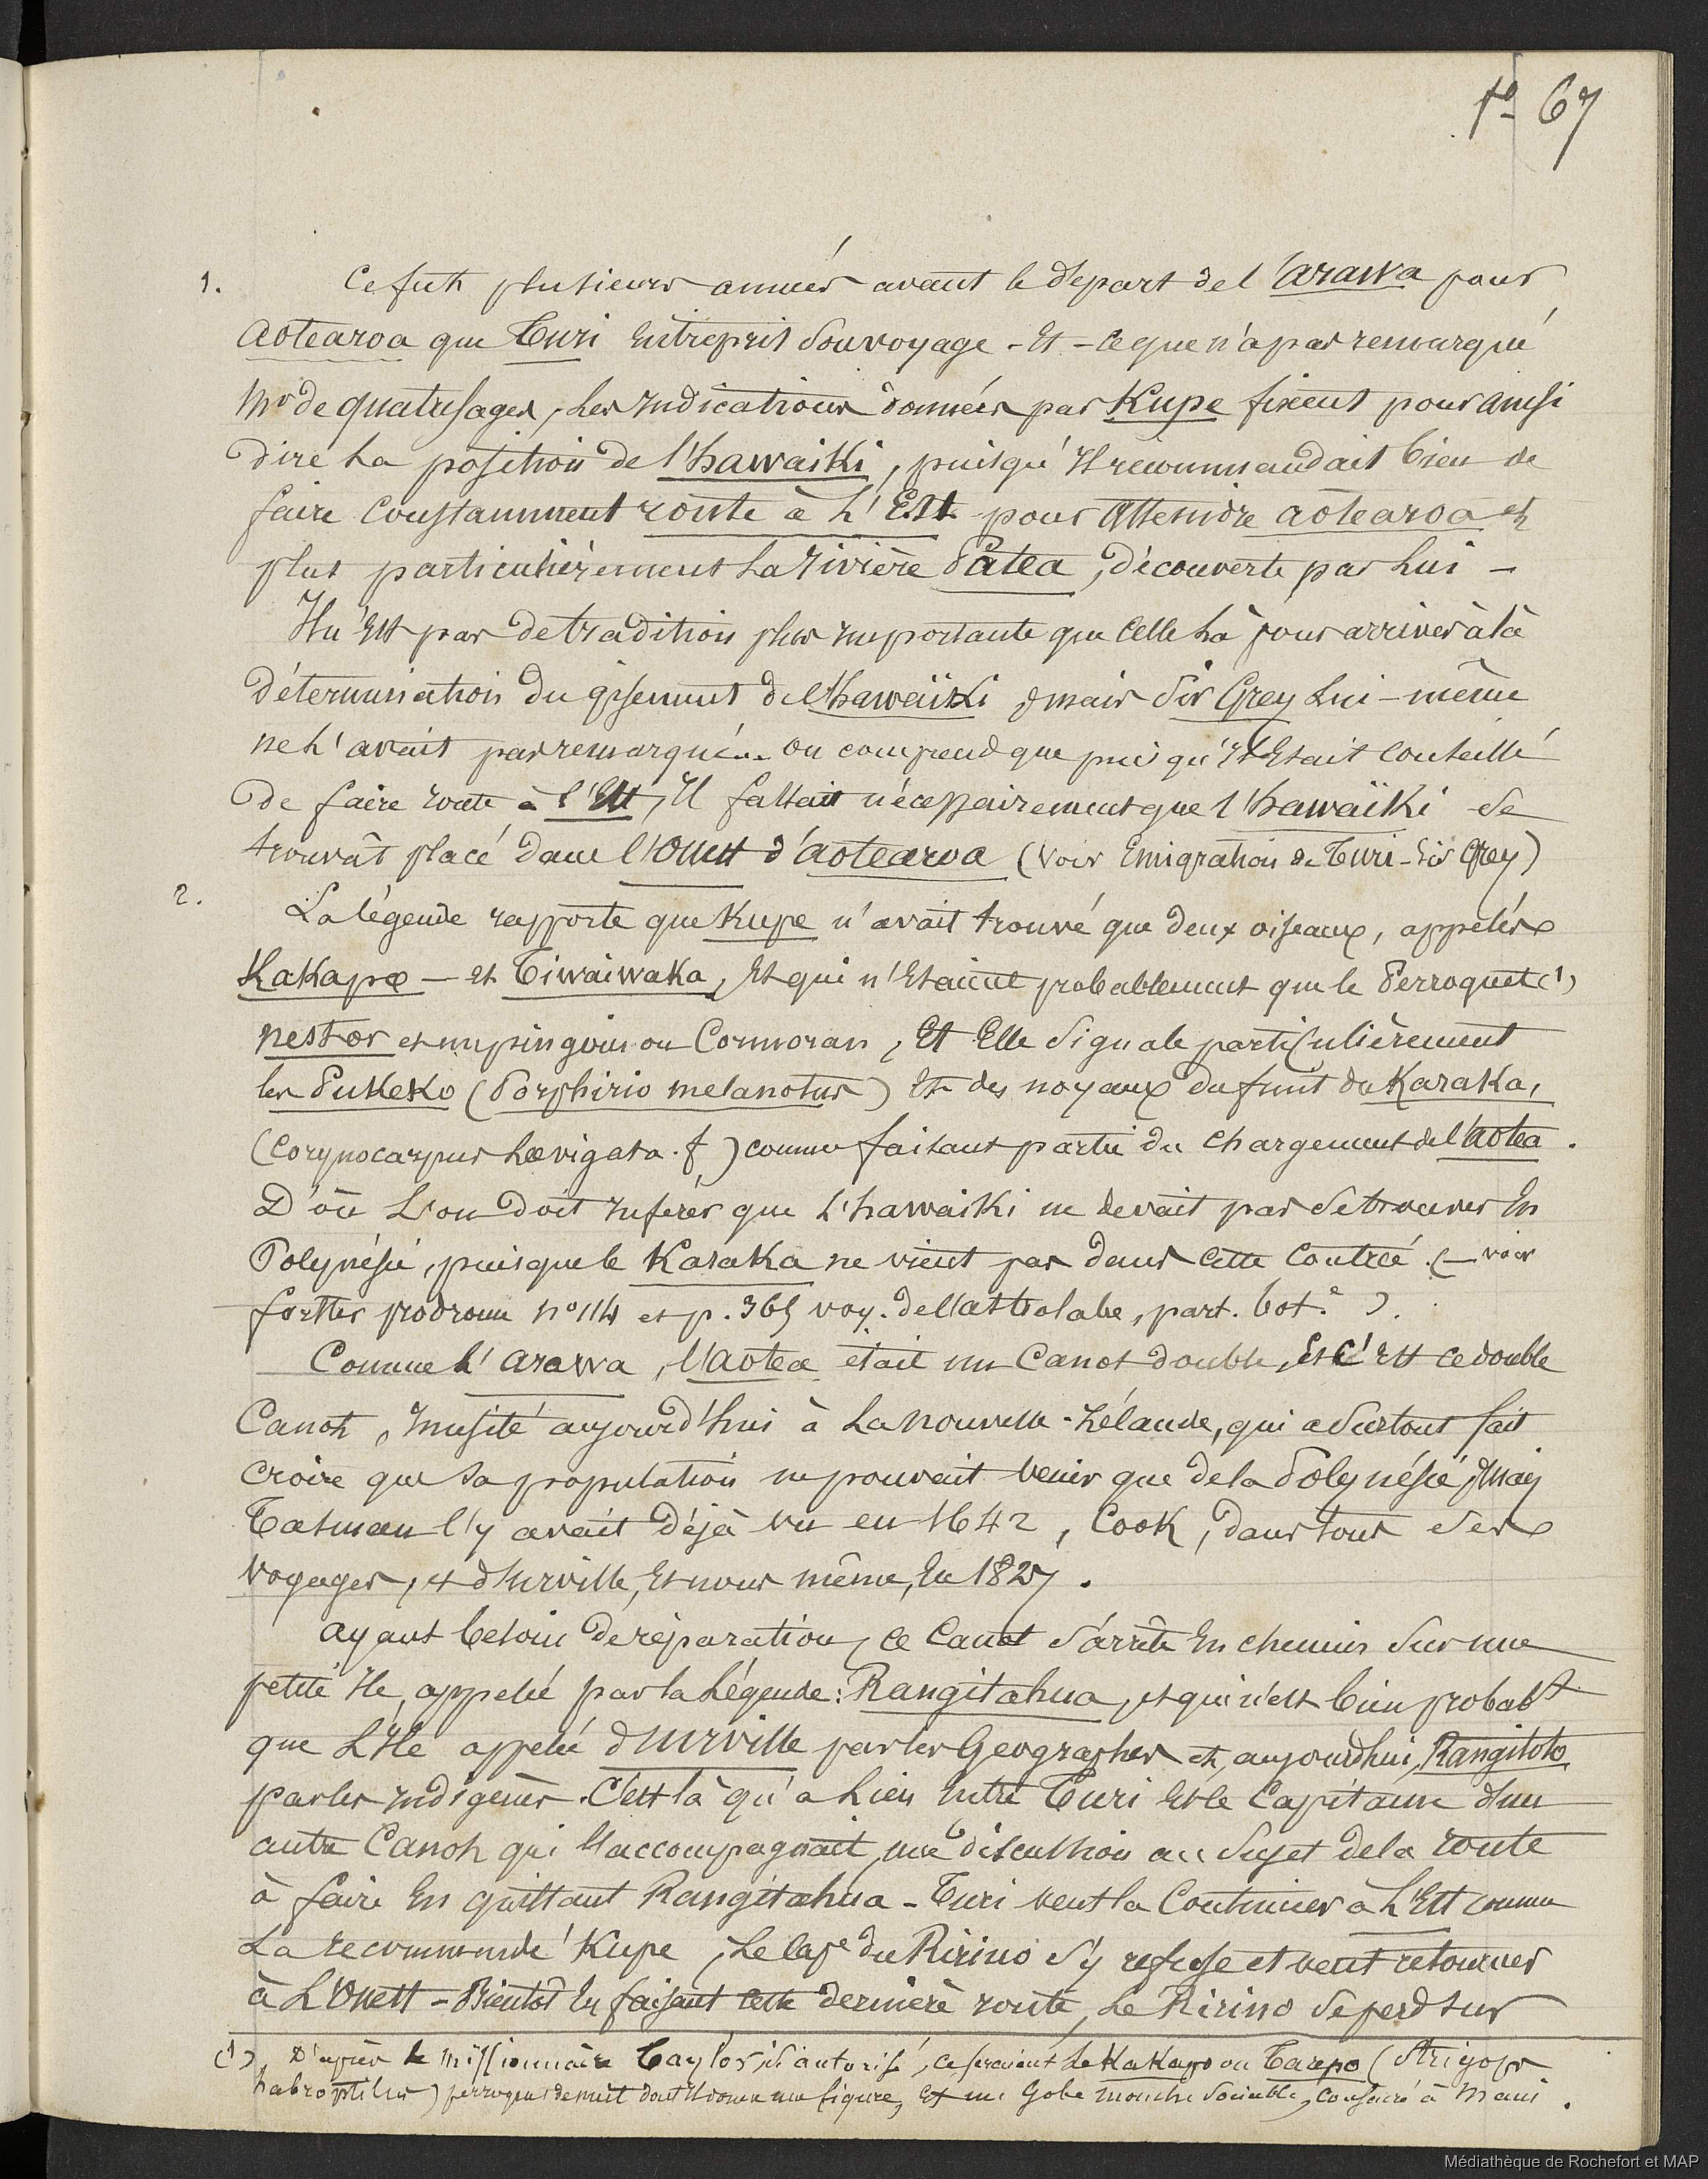 fo 67
1. Ce fut plusieurs années avant le départ de l'arawa pour
aotearoa que Turi entreprit son voyage - Et - ce que n'a pas remarqué
Mr de quatrefages, les indications données par Kupe fixent pour ainsi
dire la position de l'hawaiki, puisqu'il recommandait bien de
faire constamment route à l'Est pour atteindre aotearoa et
plus particulièrement la rivière Patea, découverte par lui -
Il n'est pas de tradition plus importante que celle là pour arriver à la
détermination du gisement de l'hawaïki, mais Sir Grey lui-même
ne l'avait pas remarqué... on comprend que puisqu'il était conseillé
de faire route à l'Est, Il fallait nécessairement que l'hawaïki se
trouvât placé dans l'ouest d'aotearoa (voir Emigration de Turi - Sir Grey)
2. La légende rapporte que Kupe n'avait trouvé que deux oiseaux, appelés
Kakapo - et Tiwaiwaka, Et qui n'étaient probablement que le Perroquet (1)
nestor et un pingouin ou Cormoran, Et Elle signale particulièrement
les Pukeko (Porphirio melanotus) Et des noyaux du fruit du Karaka,
(Corynocarpus lœvigata. f) comme faisant partie du chargement de l'aotea.
D'où l'on doit inférer que l'hawaiki ne devait pas se trouver En
Polynésie, puisque le Karaka ne vient pas dans cette contrée. (- voir
forster prodrome no 114 et p. 365 voy. de l'astrolabe, part. bot.e ).
Comme l'arawa, l'aotea était un canot double, Et c'est ce double
Canot, inusité aujourd'hui à la nouvelle-Zélande, qui a surtout fait
croire que sa population ne pouvait venir que de la Polynésie, mais
Tasman l'y avait déjà vu en 1642, Cook, dans tous ses
voyages, et d'urville, Et nous même, En 1827.
ayant besoin de réparation, ce canot s'arrête En chemin sur une
petite Ile, appelée par la légende: Rangitahua, et qui n'est bien probabt
que l'Ile appelée d'urville par les Géographes et, aujourdhui, Rangitoto
par les indigènes. C'est là qu'a lieu entre Turi Et le Capitaine d'un
autre Canot qui l'accompagnait, une discussion au sujet de la route
à faire En quittant Rangitahua - Turi veut la continuer à l'Est comme
la recommandé Kupe, le Cape du Ririno s'y refuse et veut retourner
à l'Ouest - Bientôt En faisant cette dernière route, le Ririno se perd sur
(1), D'après le missionnaire Taylor, si autorisé, ce seraient le Kakapo ou Tarepo (Strigops
habroptilus) perroquet de nuit dont Il donne une figure, Et un Gobe mouche sociable, consacré à Maui.
Médiathèque de Rochefort et MAP